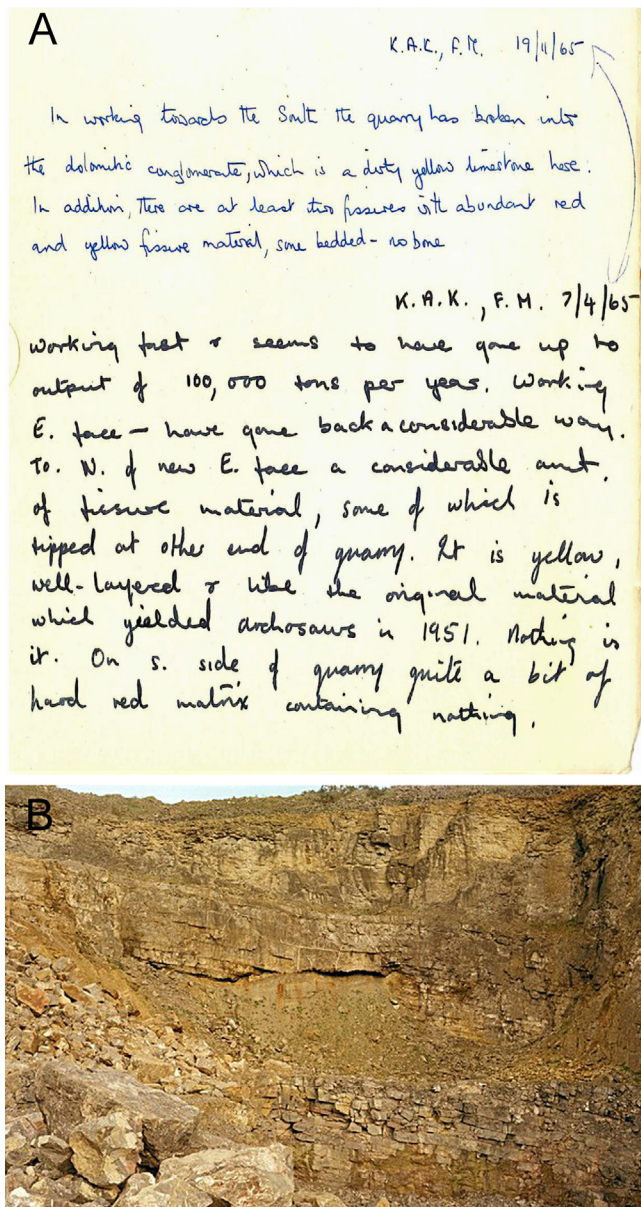 A
K.A.K., F.M. 19/11/65
In working towards the South the quarry has broken into
the dolomitic conglomerate, which is a dirty yellow limestone here.
In addition, there are at least two fissures with abundant red
and yellow fissure material, some bedded - no bone
K.A.K., F.M. 7/4/65
Working fast & seems to have gone up to
output of 100,000 tons per year. Working
E. face - have gone back a considerable way.
To. N. of new E. face a considerable amt.
of fissure material, some of which is
tipped at other end of quarry. It is yellow,
well-layered & like the original material
which yielded archosaurs in 1951. Nothing is
it. On S. side of quarry quite a bit of
hard red matrix containing nothing.
B